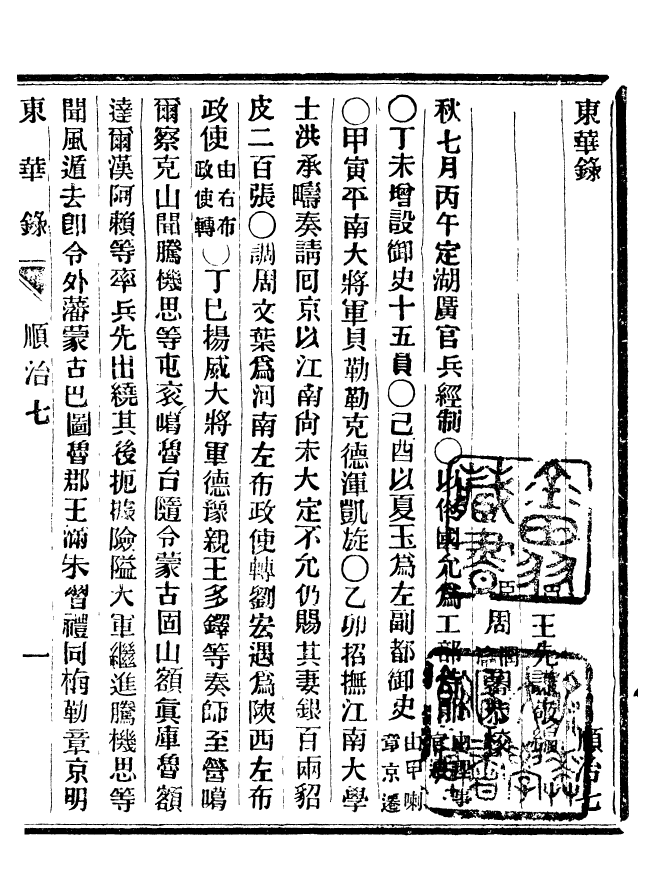 東華錄 順治七
王先謙敬編
臣周 校
秋七月丙午定湖廣官兵經制〇以佟國允爲工部
〇丁未增設御史十五員〇己酉以夏玉爲左副都御史由甲喇章京遷
〇甲寅平南大將軍貝勒勒克德渾凱旋〇乙卯招撫江南大學
士洪承疇奏請回京以江南尚未大定不允仍賜其妻銀百兩貂
皮二百張〇調周文葉爲河南左布政使轉劉宏遇爲陝西左布
政使由右布政使轉〇丁巳揚威大將軍德豫親王多鐸等奏師至營噶
爾察克山聞騰機思等屯袞噶魯台隨令蒙古固山額眞庫魯額
達爾漢阿賴等率兵先出繞其後扼據險隘大軍繼進騰機思等
聞風遁去卽令外藩蒙古巴圖魯郡王滿朱習禮同梅勒章京明
東華錄 順治七 一